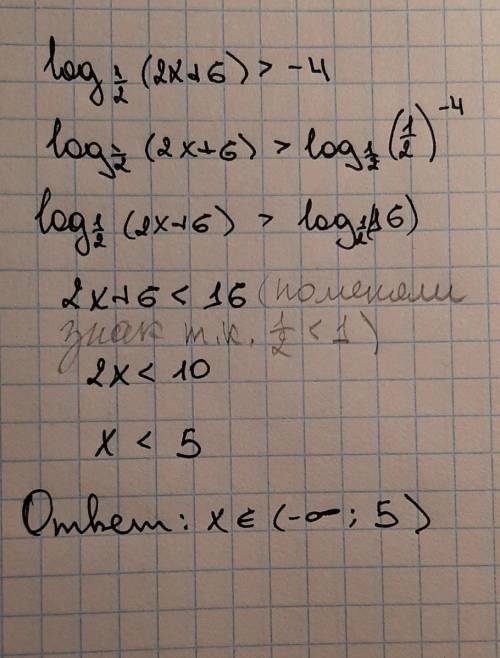 log_{1/2} (2x+6) > -4
log_{1/2} (2x+6) > log_{1/2} (1/2)^{-4}
log_{1/2} (2x+6) > log_{1/2} (16)
2x+6 < 16 (поменяли
знак т.к. 1/2 < 1)
2x < 10
x < 5
Ответ: x ∈ (-∞; 5)